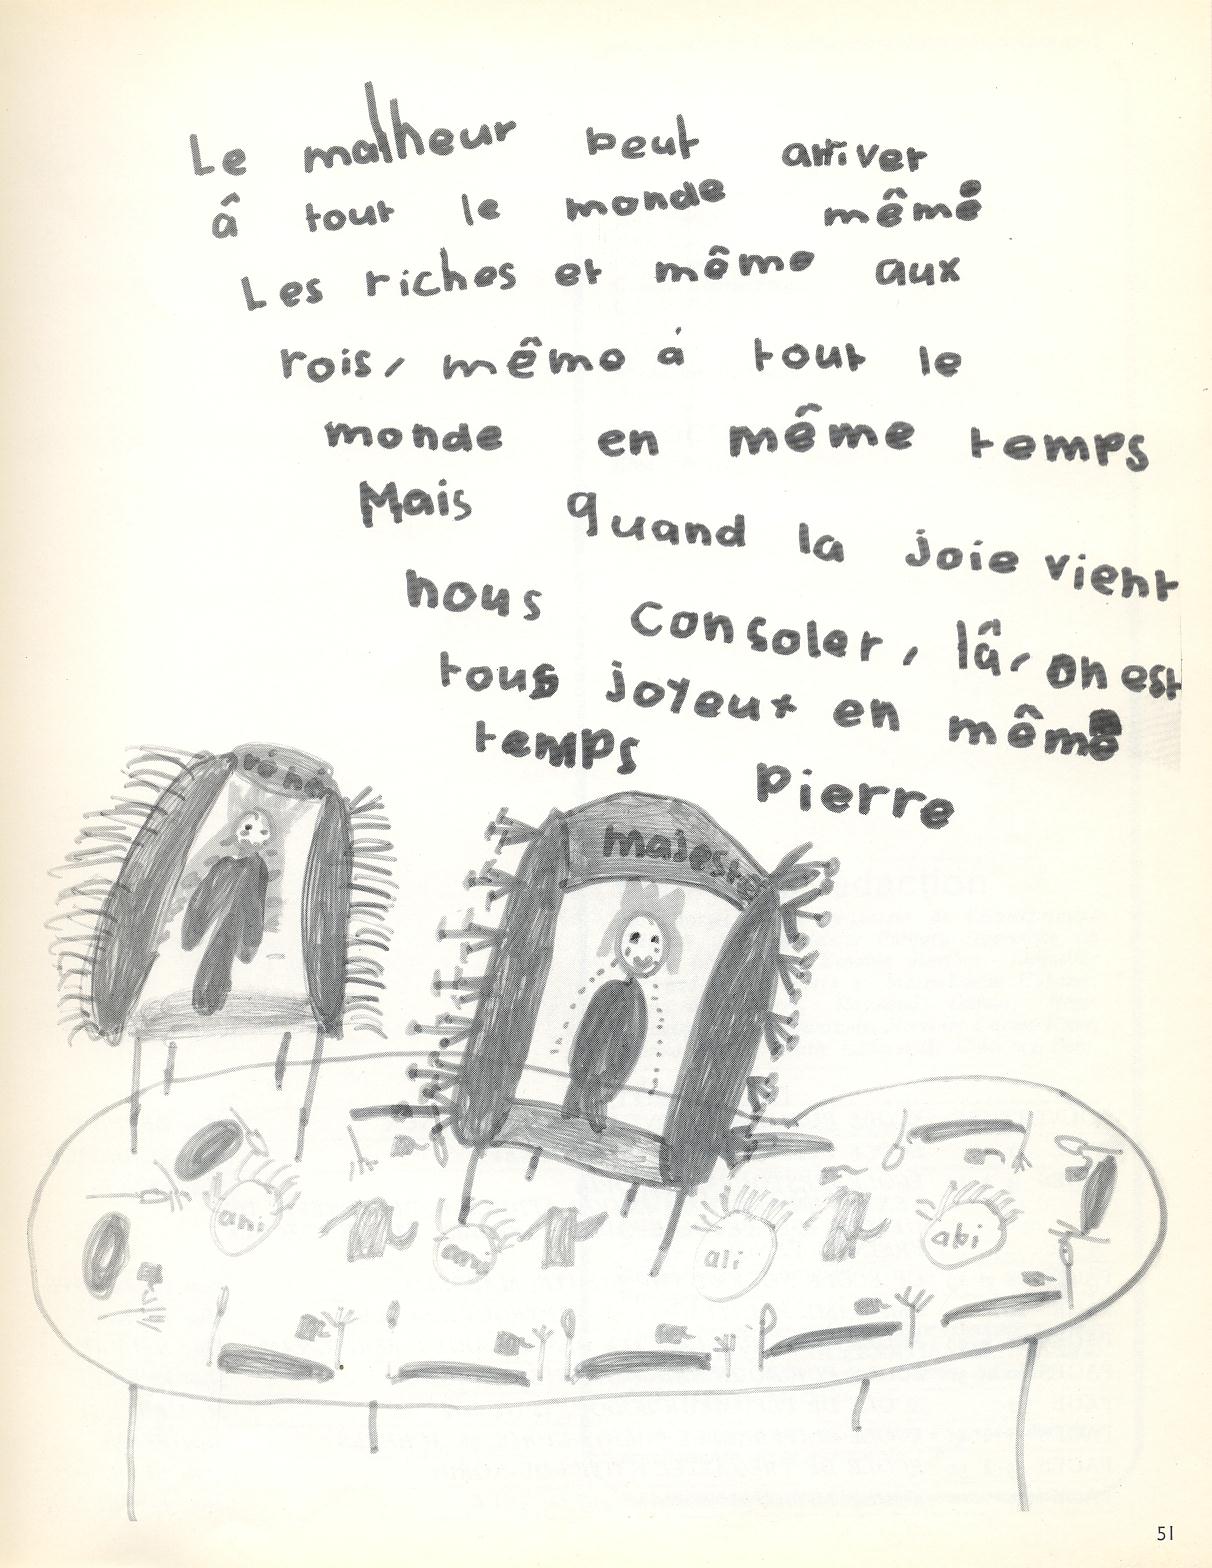 Le malheur peut arriver
â tout le monde même
Les riches et même aux
rois, même à tout le
monde en même temps
Mais quand la joie vient
nous consoler, lâ, on est
tous joyeux en même
temps Pierre
majesté
ani
ali
abi
51